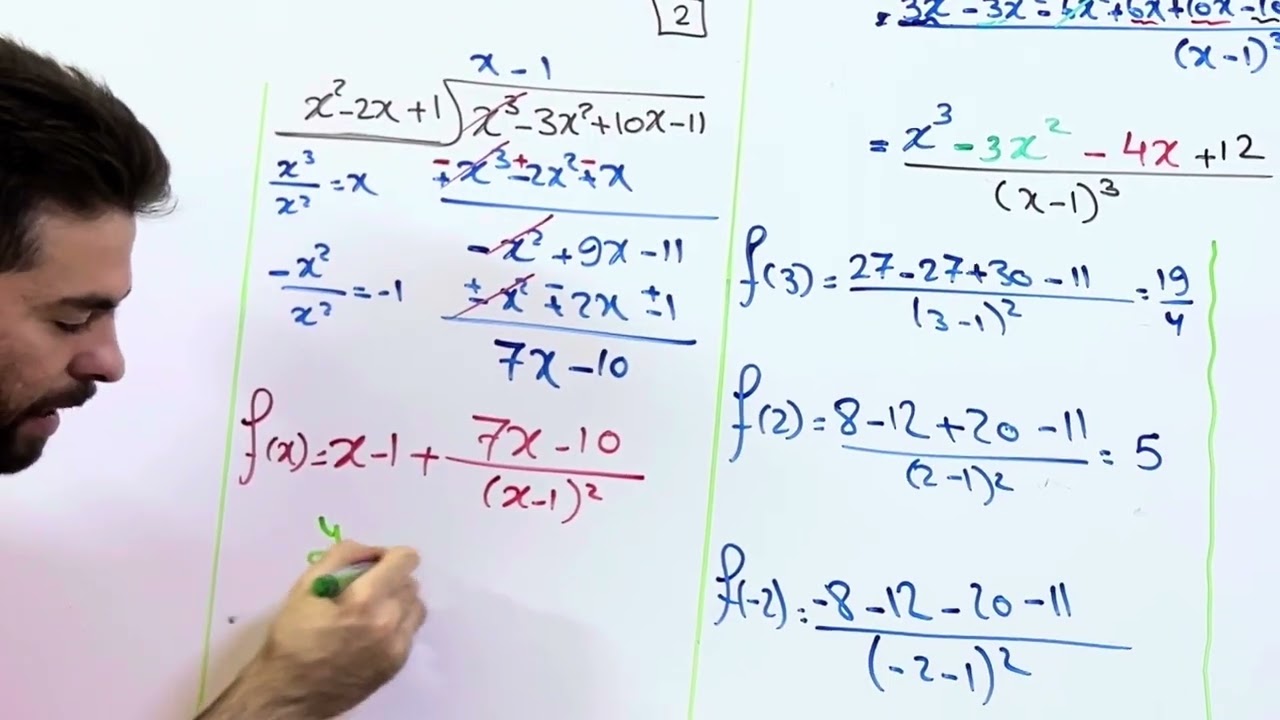 2
x - 1
x² - 2x + 1 x³ - 3x² + 10x - 11
x³/x² = x
x³ - 2x² + x
- x² + 9x - 11
-x²/x² = -1
- x² + 2x - 1
7x - 10
f(x) = x - 1 + (7x - 10)/(x - 1)²
y
(x - 1)³
= (x³ - 3x² - 4x + 12)/(x - 1)³
f(3) = (27 - 27 + 30 - 11)/(3 - 1)² = 19/4
f(2) = (8 - 12 + 20 - 11)/(2 - 1)² = 5
f(-2) = (-8 - 12 - 20 - 11)/(-2 - 1)²